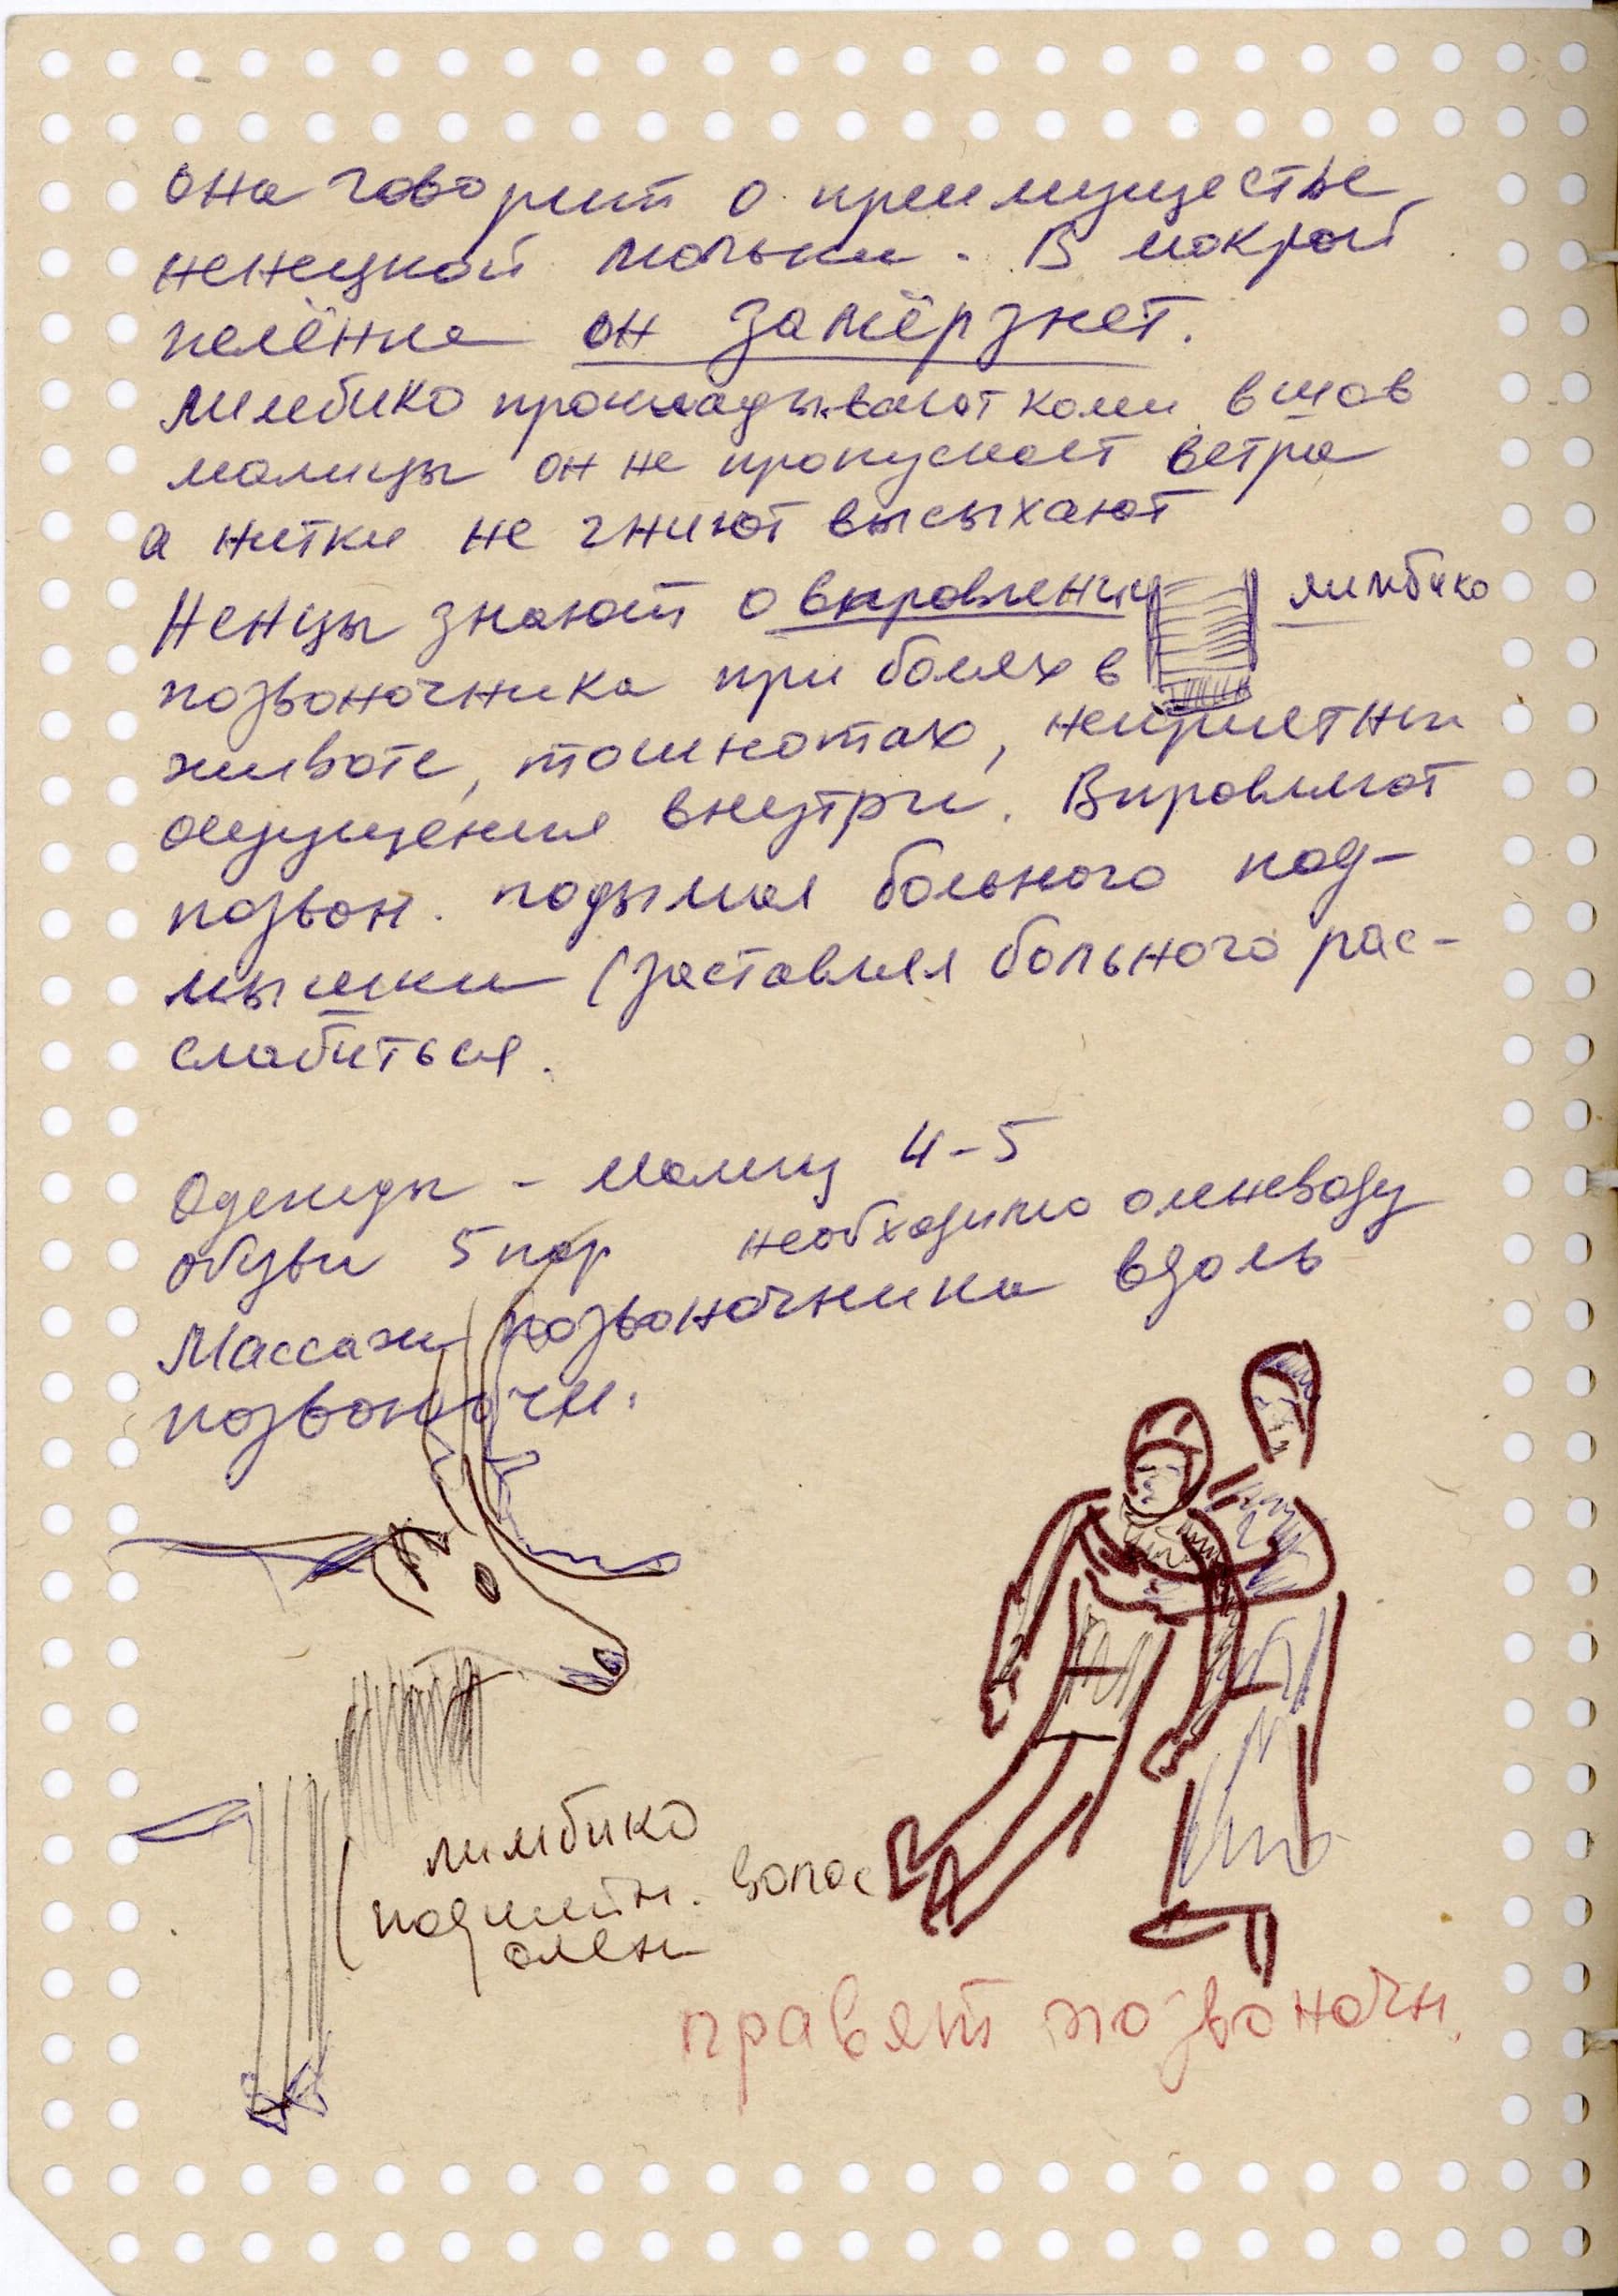 она говорит о преимуществе
ненецкой люльки. В мокрой
пелёнке он замёрзнет.
лимбико прокладывают коми в шов
малицы он не пропускает ветра
а нитки не гниют высыхают
Ненцы знают о вправлении
лимбико
позвоночника при болях в
животе, тошнотах, неприятны
ощущения внутри. Вправляют
позвон. подымая больного под-
мышки (заставляя больного рас-
слабиться.
Одежды - малиц 4-5
обуви 5 пар необходимо оленеводу
Массаж позвоночника вдоль
позвоночн.
лимбико
(подшейн. волос
олен
правят позвоночн.